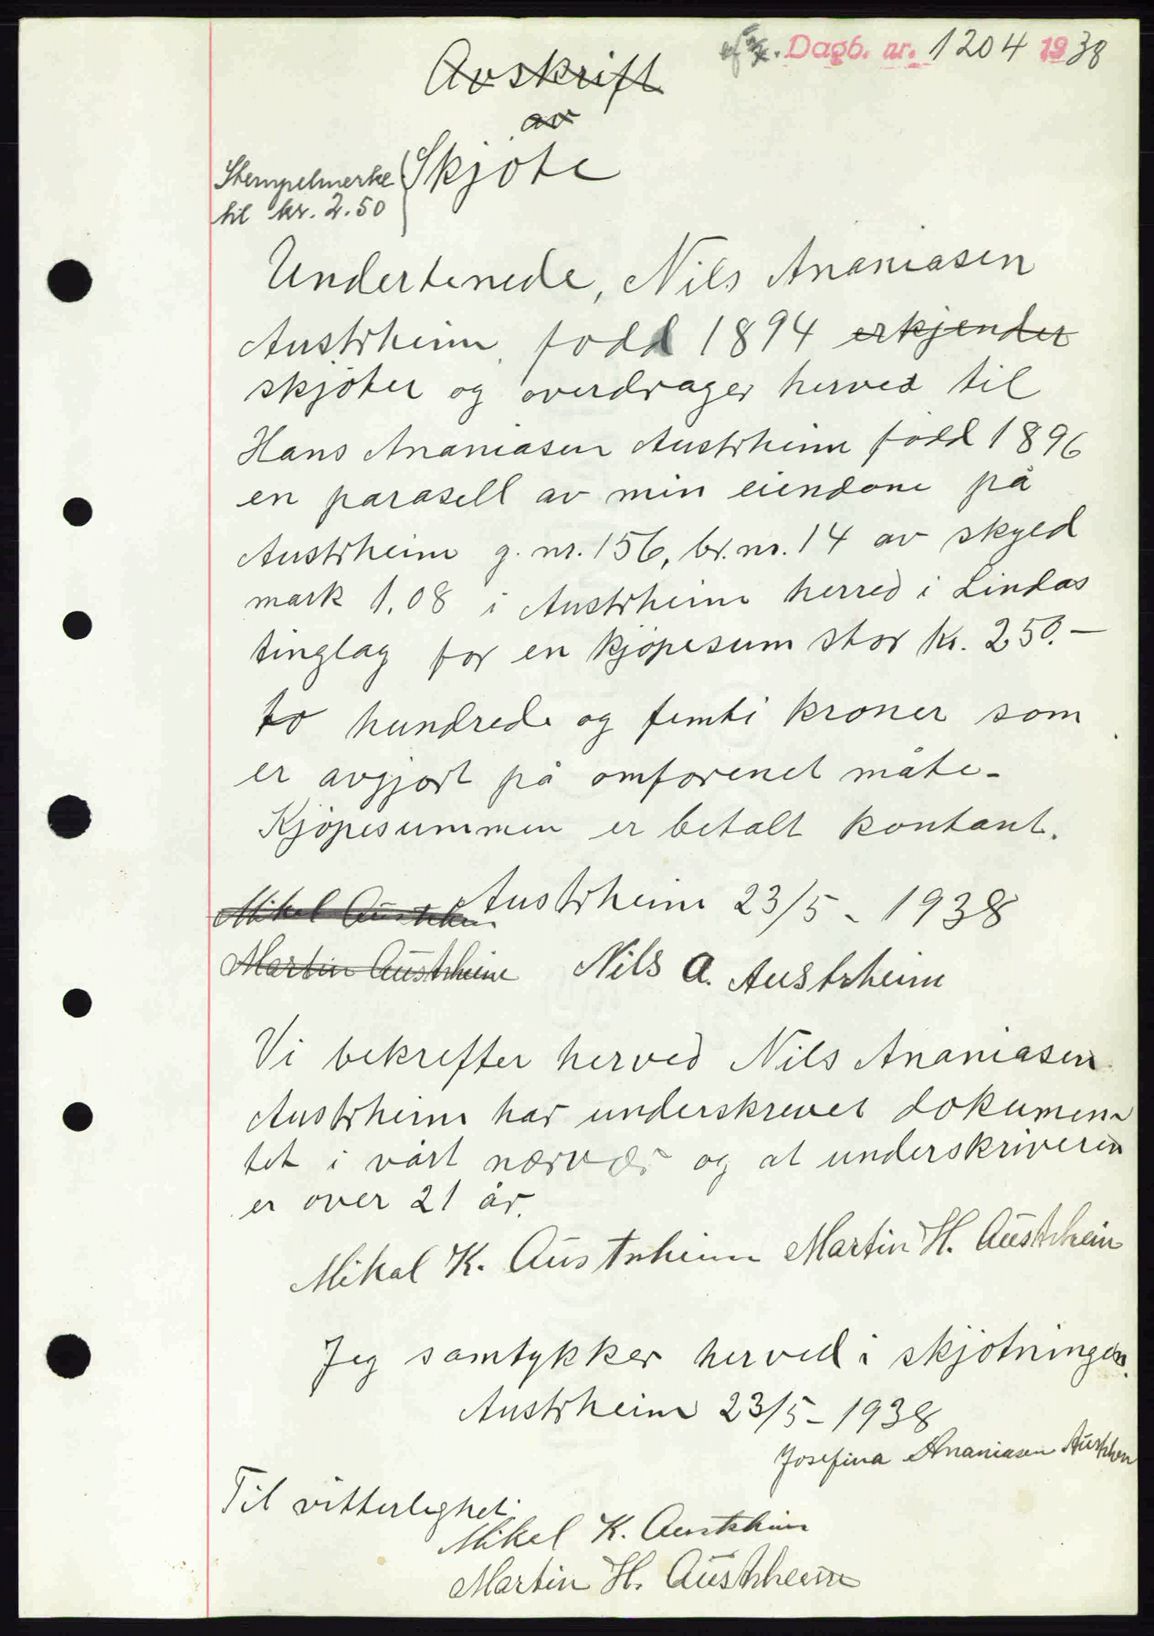 Dagb. nr. 1204 1938
Avskrift
av
Skjøte
Stempelmerke
til kr. 2.50
Undertenede, Nils Ananiasen
Austrheim, fødd 1894 erkjender
skjøter og overdrager herved til
Hans Ananiasen Austrheim fødd 1896
en parasell av min eiendom på
Austrheim g. nr. 156, br. nr. 14 av skyld
mark 1,08 i Austrheim herred i Lindås
tinglag for en kjøpesum stor kr. 250.—
to hundrede og femti kroner som
er avgjort på omforenet måte-
Kjøpesummen er betalt kontant.
Austrheim 23/5 - 1938
Mikal Austrheim
Martin Austrheim Nils A. Austrheim
Vi bekrefter herved Nils Ananiasen
Austrheim har underskrevet dokumen-
tet i vårt nærvær og at underskriveren
er over 21 år.
Mikal K. Austrheim Martin H. Austrheim
Jeg samtykker herved i skjøtningen.
Austrheim 23/5 - 1938
Josefina Ananiasen Austrheim
Til vitterlighet
Mikal K. Austrheim
Martin H. Austrheim